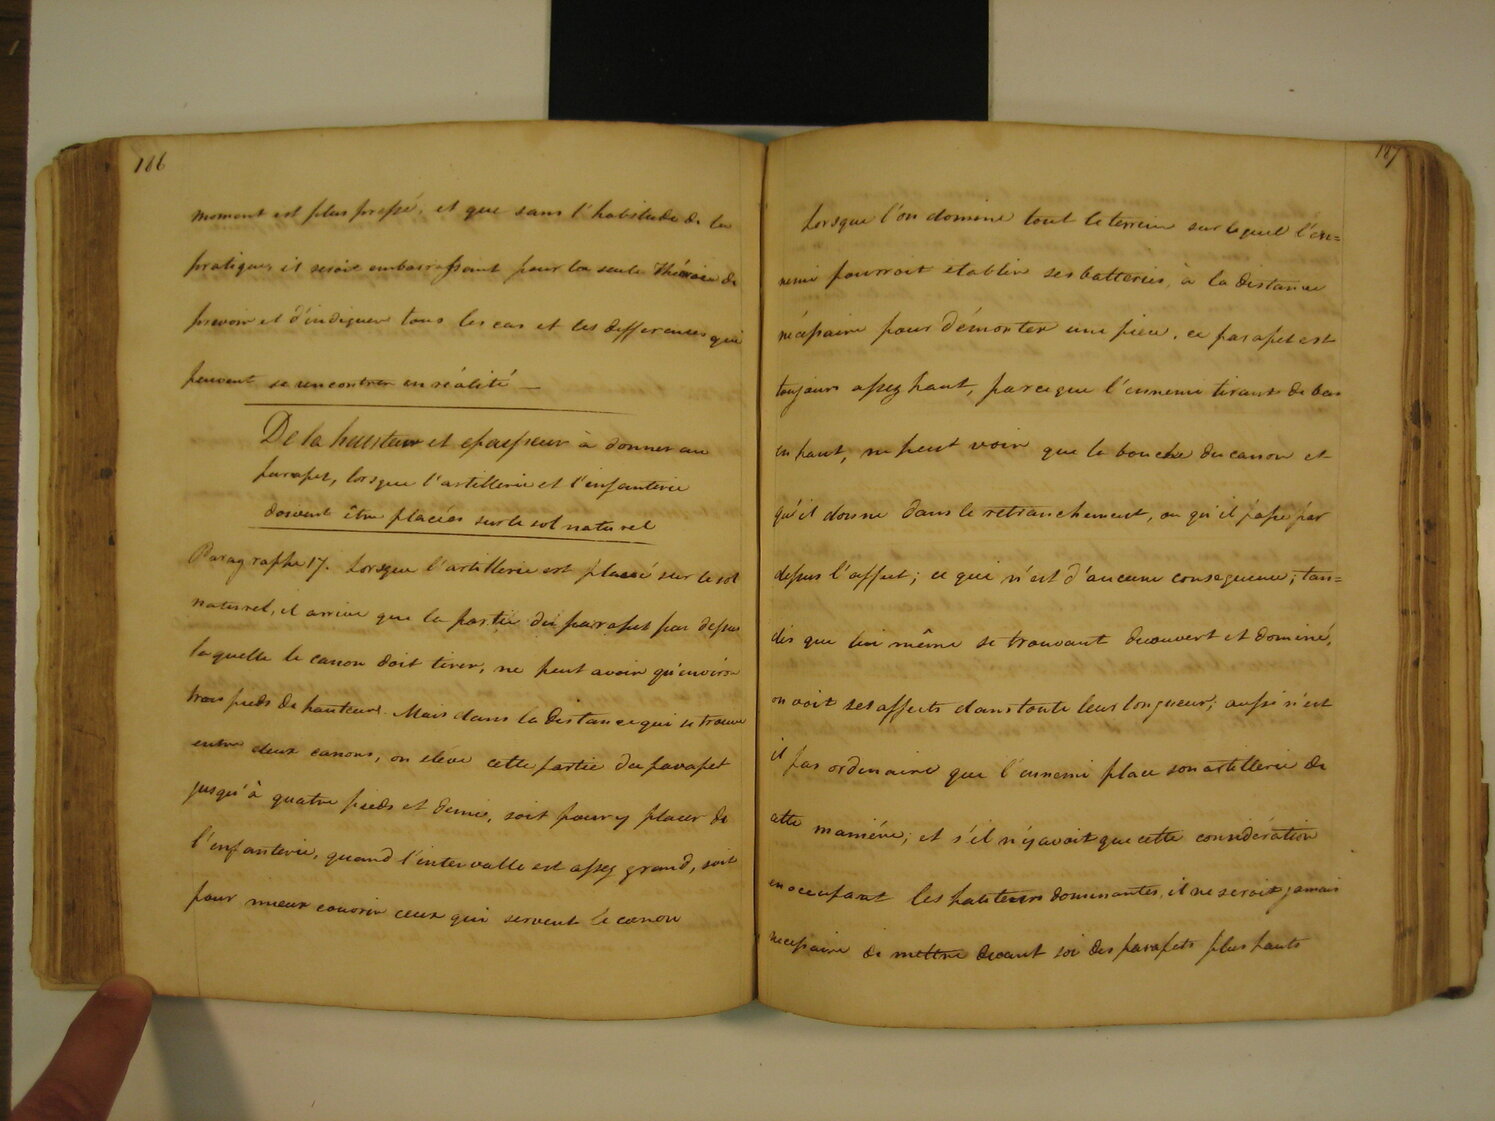 186
moment est plus pressé, et que sans l'habitude de la
pratique, il seroit embarrassant pour la seule théorie de
prevoir et d'indiquer tous les cas et les differences qui
peuvent se rencontrer en réalité —
De la hauteur et epaisseur à donner au
parapet, lorsque l'artillerie et l'infanterie
doivent être placées sur le sol naturel
Paragraphe 17. Lorsque l'artillerie est placée sur le sol
naturel, il arrive que la partie du parapet par dessus
laquelle le canon doit tirer, ne peut avoir qu'environ
trois pieds de hauteur. Mais dans la distance qui se trouve
entre deux canons, on eléve cette partie du parapet
jusqu'à quatre pieds et demie, soit pour y placer de
l'infanterie, quand l'intervalle est assez grand, soit
pour mieux couvrir ceux qui servent le canon
187
Lorsque l'on domine tout le terrein sur lequel l'en=
nemi pourroit etablir ses batteries, à la distance
nécessaire pour démonter une piece, ce parapet est
toujours assez haut, parceque l'ennemi tirant de bas
en haut, ne peut voir que la bouche du canon et
qu'il donne dans le retranchement, ou qu'il passe par
dessus l'affut; ce qui n'est d'aucune consequence; tan=
dis que lui même se trouvant decouvert et dominé,
on voit ses affuts dans toute leur longueur; aussi n'est
il pas ordinaire que l'ennemi place son artillerie de
cette maniére; et s'il n'y avoit que cette considération
en occupant les hauteurs dominantes, il ne seroit jamais
necessaire de mettre devant soi des parapets plus hauts